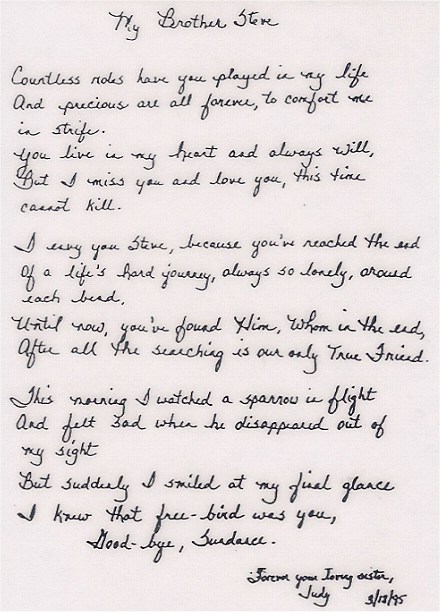 My Brother Steve
Countless roles have you played in my life
And precious are all forever, to comfort me
in strife.
You live in my heart and always will,
But I miss you and love you, this time
cannot kill.
I envy you Steve, because you've reached the end
Of a life's hard journey, always so lonely, around
each bend,
Until now, you've found Him, Whom in the end,
After all the searching is our only True Friend.
This morning I watched a sparrow in flight
And felt sad when he disappeared out of
my sight
But suddenly I smiled at my final glance
I knew that free-bird was you,
Good-bye, Sundance.
Forever your loving sister,
Judy 3/13/95